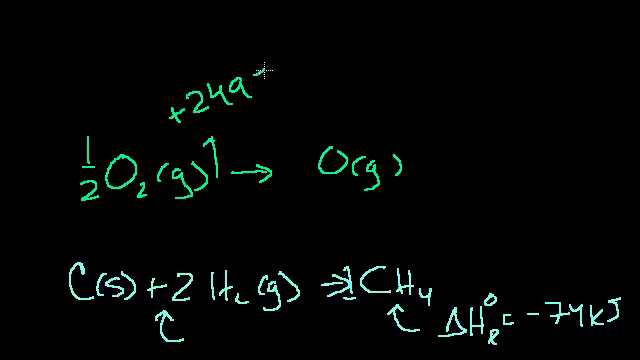 +249
½O₂(g) → O(g)
C(s) + 2H₂(g) → 1CH₄
ΔH°R = -74kJ